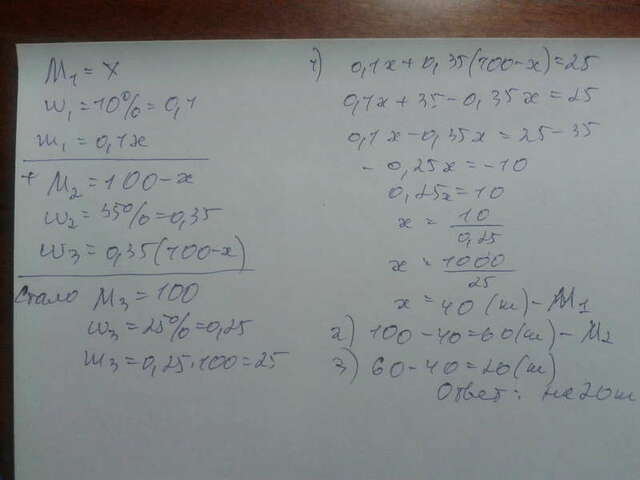 M₁ = x
ω₁ = 10% = 0,1
m₁ = 0,1x
+ M₂ = 100 - x
ω₂ = 35% = 0,35
ω₃ = 0,35(100-x)
Стало M₃ = 100
ω₃ = 25% = 0,25
m₃ = 0,25·100 = 25
1) 0,1x + 0,35(100-x) = 25
0,1x + 35 - 0,35x = 25
0,1x - 0,35x = 25 - 35
- 0,25x = -10
0,25x = 10
x = 10/0,25
x = 1000/25
x = 40 (кг) - M₁
2) 100 - 40 = 60 (кг) - M₂
3) 60 - 40 = 20 (кг)
Ответ: на 20 кг